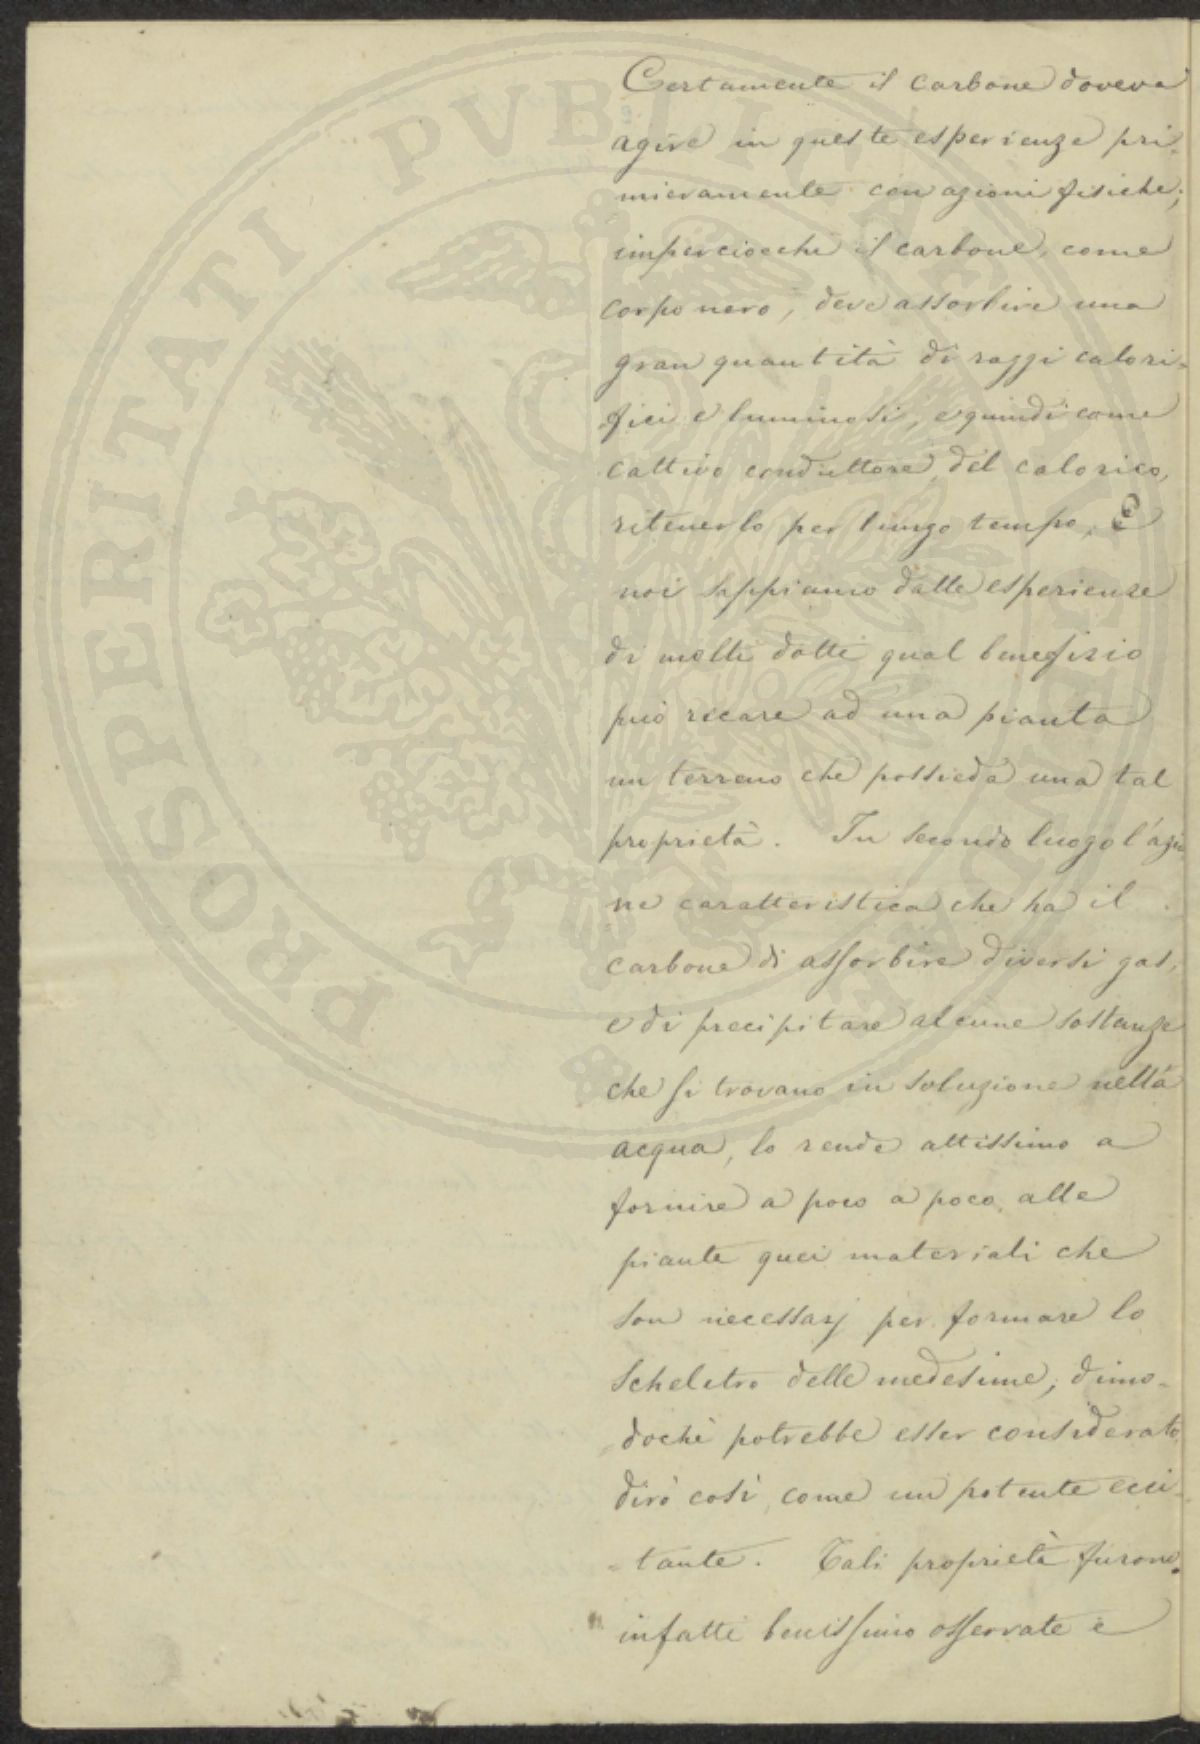 Certamente il carbone doveva
agire in queste esperienze pri-
mieramente con azioni fisiche;
imperciocchè il carbone, come
corpo nero, deve assorbire una
gran quantità di raggi calori-
fici e luminosi, e quindi come
cattivo conduttore del calorico,
ritenerlo per lungo tempo, E
noi sappiamo dalle esperienze
di molti dotti qual benefizio
può recare ad una pianta
un terreno che possieda una tal
proprietà. In secondo luogo l'azio
ne caratteristica che ha il
carbone di assorbire diversi gas,
e di precipitare alcune sostanze
che si trovano in soluzione nella
acqua, lo rende attissimo a
fornire a poco a poco alle
piante quei materiali che
son necessarj per formare lo
scheletro delle medesime; dimo-
dochè potrebbe esser considerato,
dirò così, come un potente ecci-
-tante. Tali proprietà furono
infatti benissimo osservate e
PROSPERITATI PVBLICAE AVGENDAE